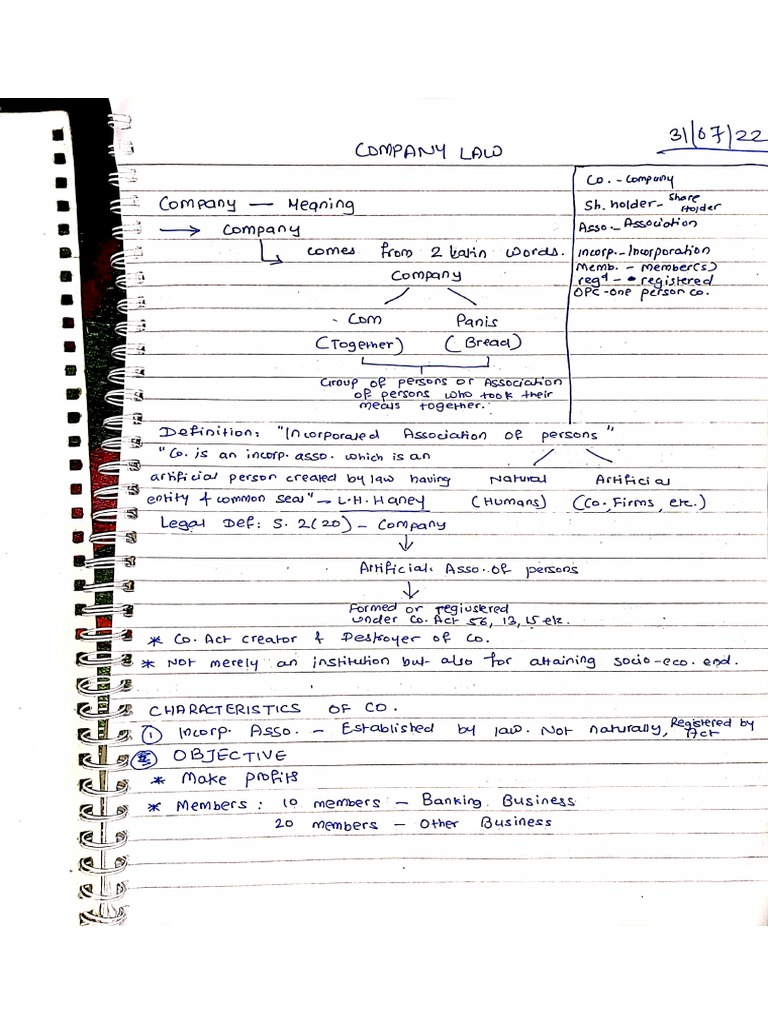 31/07/22
COMPANY LAW
Co. - Company
Sh. holder - Share Holder
Asso. - Association
Incorp. - Incorporation
Memb. - member(s)
regd - registered
OPC - one person co.
Company — Meaning
→ Company
comes from 2 Latin words.
Company
Com Panis
(Together) (Bread)
Group of persons or Association
of persons who took their
meals together.
Definition: "Incorporated Association of persons"
"Co. is an incorp. asso. which is an
artificial person created by law having
entity & common seal" - L.H. Haney
Natural Artificial
(Humans) (Co, Firms, etc.)
Legal Def: S. 2(20) - Company
↓
Artificial Asso. of persons
↓
Formed or regiustered
under Co. Act 56, 13, 15 etc.
* Co. Act creator & Destroyer of Co.
* Not merely an institution but also for attaining socio-eco. end.
CHARACTERISTICS OF CO.
① Incorp. Asso. - Established by law. Not naturally, Registered by Act
OBJECTIVE
* Make profits
* Members: 10 members - Banking Business
20 members - Other Business